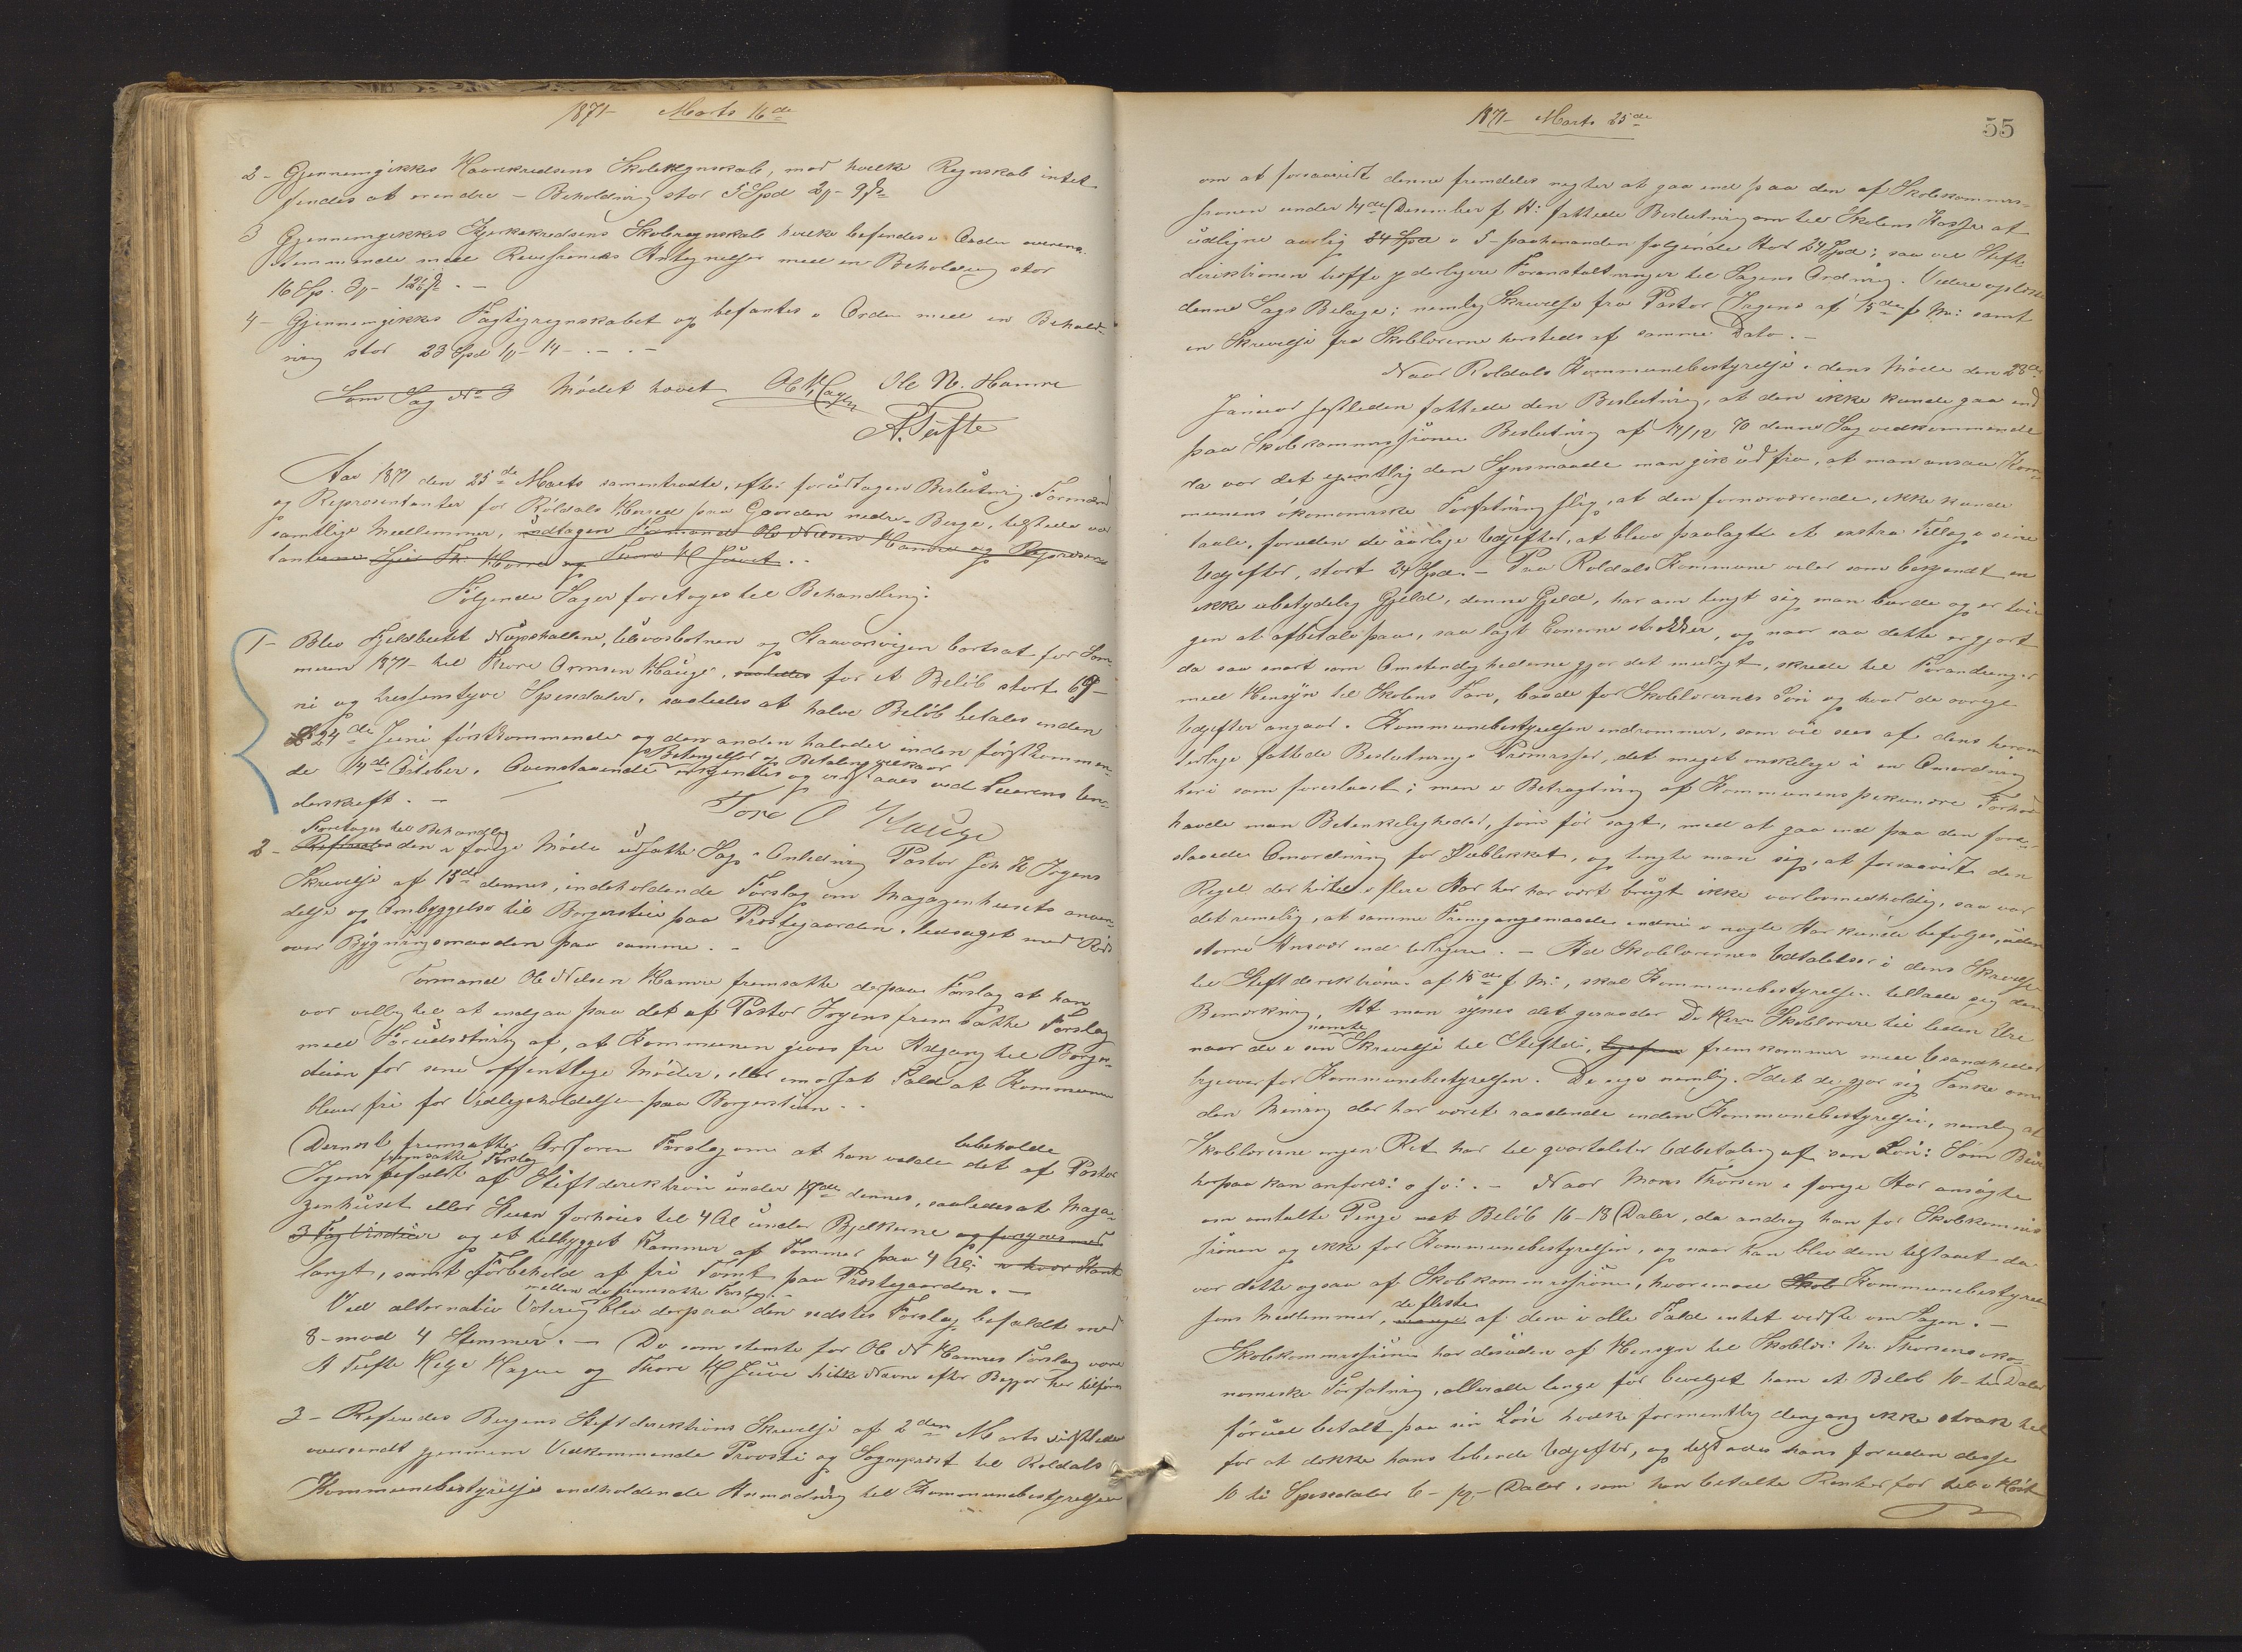 1871- Marts 16de
2- Gjennemgikkes Haarekredsens Skoleregnskab, mod hvilke Regnskab intet
findes at erindre - Beholdning stor 5 Spd 2 - 9
3 Gjennemgikkes Kjerkekredsens Skoleregnskab hvilke befindes i Orden overens-
stemmende med Revisionens Antegnelser med en Beholdning stor
16 Sp. 3 - 12
4- Gjennemgikkes Fattigregnskabet og befantes i Orden med en Behold-
ning stor 23 Spd 1 - 14 - . - . -
Som Sag No 3 Mødet hævet Ole N. Hamre
A. Tufte
Aar 1871 den 25de Marts samentraadte, efter forudtagen Beslutning Formænd
og Repræsentanter for Röldals Herred paa Gaarden nedre-Berge, tilstede var
samtlige Medlemmer, undtagen Formand Ole Nilsen Hamre og Repræsen-
tanterne Th: Horre og Thore H Juvet. .
Følgende Sager foretoges til Behandling:
1- Blev Fjeldbeitet Nupshallene, Ulevosbotnen og Staavosvigen bortsat for Som-
meren 1871- til Thore Ormsen Hauge, saaledes for et Beløb stort 69-
ni og tressenstyve Spesidaler, saaledes at halve Beløb betales inden
24de Juni förstkommende og den anden halvdel inden förstkommen-
Betingelser og Betalingsvilkaar
de 14de October. Ovenstaaende og vedtages ved Leierens Un-
derskrift. -
Tore O Hauge
Foretages til Behandling
2- Refereredes den i forrige Møde udsatte Sag i Anledning Pastor Joh K Irgens
Skrivelse af 15de dennes, indeholdende Forslag om Magazinhusets anven-
delse og Ombyggelse til Borgerstue paa Prestegaarden. ledsaget med Rids
over Bygningsmaaden paa samme. -
Formand Ole Nilsen Hamre fremsatte derpaa Forslag at han
var villig til at indgaa paa det af Pastor Irgens fremsatte Forslag
med Forudsætning af, at Kommunen gives fri Adgang til Borger-
stuen for sine offentlige Møder, eller i modsat Fald at Kommunen
bliver fri for Vedligeholdelsen paa Borgerstuen - .
Dernest fremsatte Ordføren Forslag om at han vilde bibeholde det af Pastor
fremsatte Forslag
Irgens befalt af Stiftdirektion under 17de dennes, saaledes at Maga-
zinhuset eller Stuen forhöies til 4 Al under Bjelkerne og forsynes med
3 Fag Vinduer og et tilbygget Kammer af Tømmer paa 4 Al: i hver Kant
langt, samt Forbehold af fri Tomt paa Prestegaarden. -
mellem de fremsatte Forslag
Ved alternativ Votering blev derpaa den sidstes Forslag befaldt med
8- mod 4 Stemmer. - De som stemte for Ole N Hamres Forslag vare
A Tufte Helge Hagen og Thore H Juve hvilke Navne efter Begjær her tilføres
3- Referedes Bergens Stiftdirektions Skrivelse af 2den Marts sidstleden
oversendt gjennem Vedkommende Provsti og Sogneprest til Roldals
Kommunebestyrelse indholdende Anmodning til Kommunebestyrelsen
1871- Marts 25de
55
om at forsaavidt denne fremdeles negter at gaa ind paa den af Skolekommis-
sionen under 14de Desember f A: fattede Beslutning om til Skolens Kasse at
udligne aarlig 24 Spd i 5- paahinanden følgende Aar 24 Spd; saa vil Stift-
direktionen treffe yderligere Foranstaltninger til Sagens Ordning. Videre oplæstes
denne Sags Bilage; nemlig Skrivelse fra Pastor Irgens af 15de f M: samt
en Skrivelse fra Skolelærerne hersteds af samme Dato. -
Naar Roldals Kommunebestyrelse i dens Møde den 28de
Januar sistleden fattede den Beslutning, at den ikke kunde gaa ind
paa Skolekommissionens Beslutning af 14/12 70 denne Sag vedkommende
da var det egentlig den Synsmaade man gik ud fra, at man ansaa Kom-
munens økonomiske Forfatning slig, at den fornærværende, ikke kunde
taale, foruden de aarlige Udgifter, at blive paalagt et extra Tillæg i sine
Udgifter, stort 24 Spd. - Paa Roldals Kommune viler som bekjendt en
ikke ubetydelig Gjeld, denne Gjeld, har man tengt sig man burde og er tvin-
gen at afbetale paa, saa lagt Evnerne strekker, og naar saa dette er gjort
da saa snart som Omstendighederne gjør det muligt, skride til Forandringer
med Hensyn til Skolens Tarv, baade for Skolelærernes Løn og hvad de øvrige
Udgifter angaar. Kommunebestyrelsen indrømmer, som vil sees af dens herom
tidlige fattede Beslutnings Premisser, det meget ønskelige i en Omordning
heri som foreslaaet; men i Betragtning af Kommunens pekuniære Forhold
havde man Betenkeligheder, som før sagt, med at gaa ind paa den fore-
slaaede Omordning for Øieblikket, og tengte man sig, at forsaavidt den
Regel der hidtil i flere Aar her har vært brugt ikke var lovmedholdig, saa var
det rimelig, at samme Fremgangsmaade endnu i nogle Aar kunde befølges, uden
større Ansvar end tidligere. - Ad Skolelærernes Udtalelser i dens Skrivelse
til Stiftdirektionen af 15de f M:, skal Kommunebestyrelsen tillade sig den
Bemærkning, At man synes det geraader De Herr Skolelærere til liden Ære
nemte
naar de i sin Skrivelse til Stiftdi, fremkommer med Usandheder
ligeoverfor Kommunebestyrelsen. De sige nemlig. Idet de gjør sig Tanke om
den Mening der har været raadende inden Kommunebestyrelsen, nemlig at
Skolelærerne ingen Ret har til qvartalvis Udbetaling af sin Løn: Som Bevis
herpaa kan anføres: o s v: . - Naar Mons Thorsen i forrige Aar ansøgte
om omtalte Penge et Beløb 16-18 Daler, da androg han for Skolekommis-
sionen og ikke for Kommunebestyrelsen, og naar han blev dem tilstaaet da
var dette ogsaa af Skolekommissionen, hvorimod Skole Kommunebestyrel-
de fleste
sens Medlemmer, mange af dem i alle Fald intet vidste om Sagen. -
Skolekommissionen har desuden af Hensyn til Skolelr: M. Thorsens øko-
nomiske Forfatning, allerede lenge før bevilget ham et Beløb 10- ti Daler
forud betalt paa sin Løn hvilke formentlig dengang ikke strak til
for at dekke hans løbende Udgifter, og tilstodes hans foruden disse
10 ti Spesidaler 6- Daler, som han betalte Renter for til i Høst